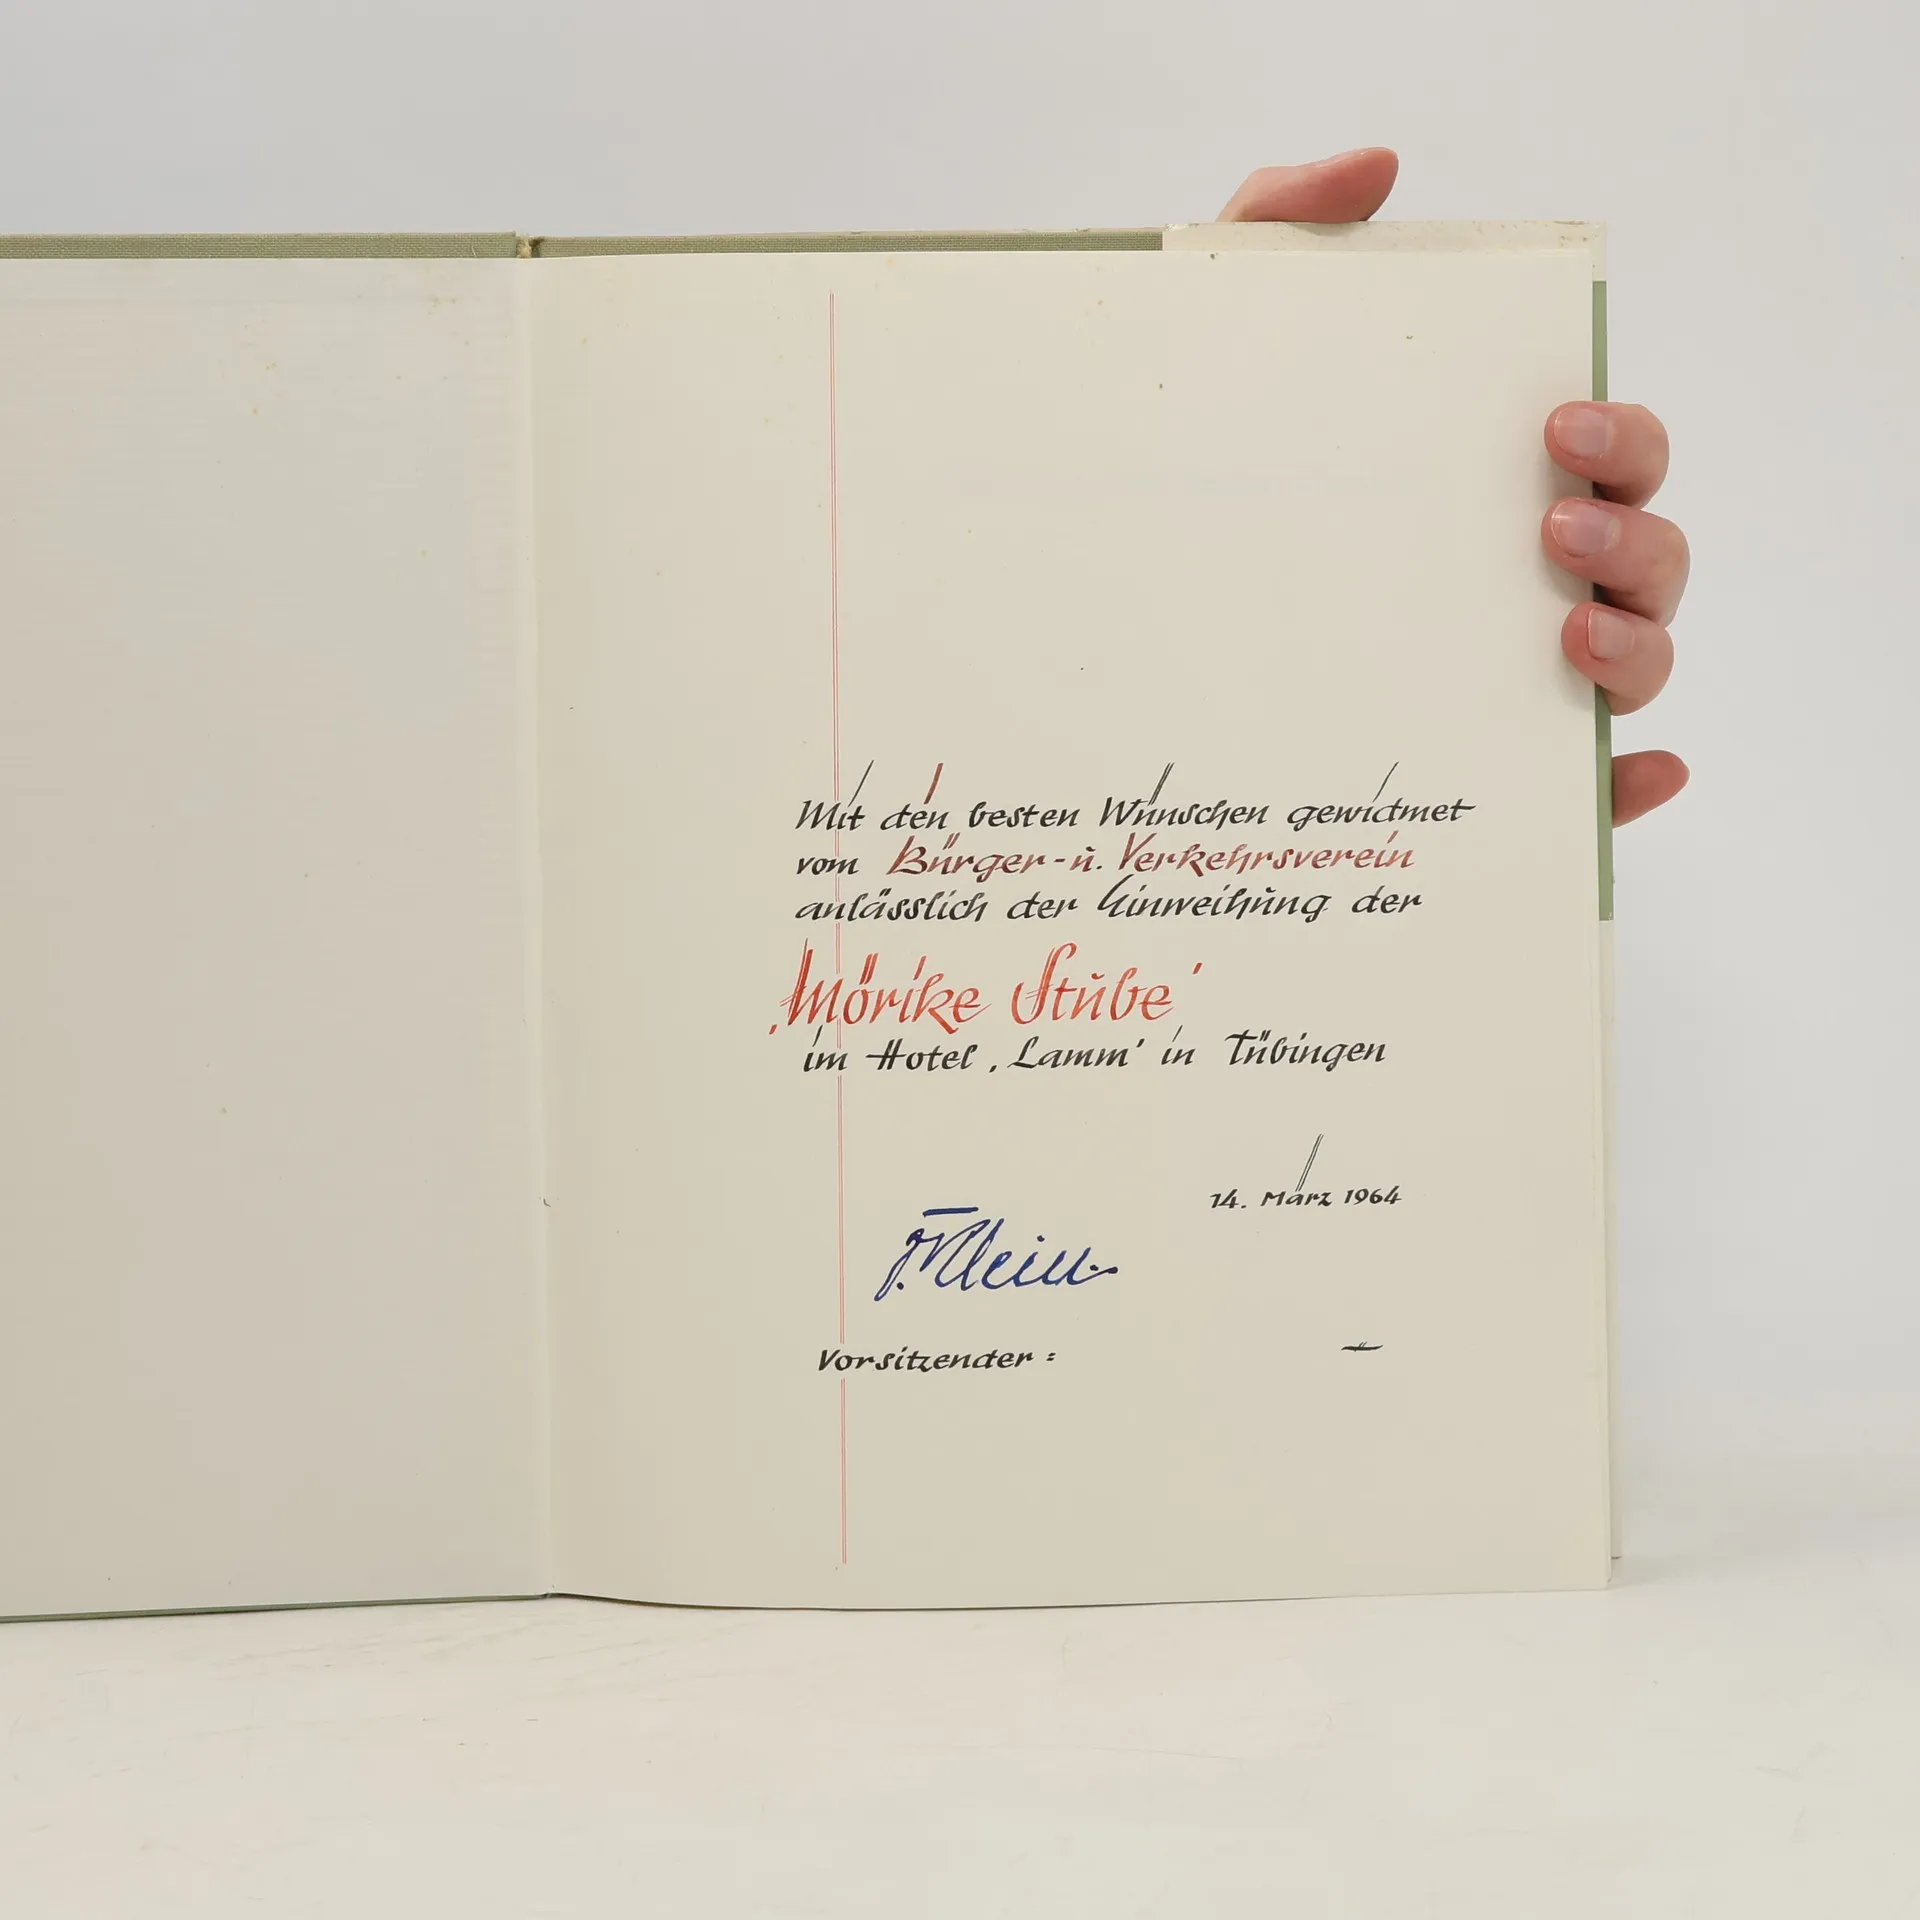 Mit den besten Wünschen gewidmet
vom Bürger- u. Verkehrsverein
anlässlich der Einweihung der
‚Mörike Stube‘
im Hotel ‚Lamm‘ in Tübingen
14. März 1964
F. Klein.
Vorsitzender: